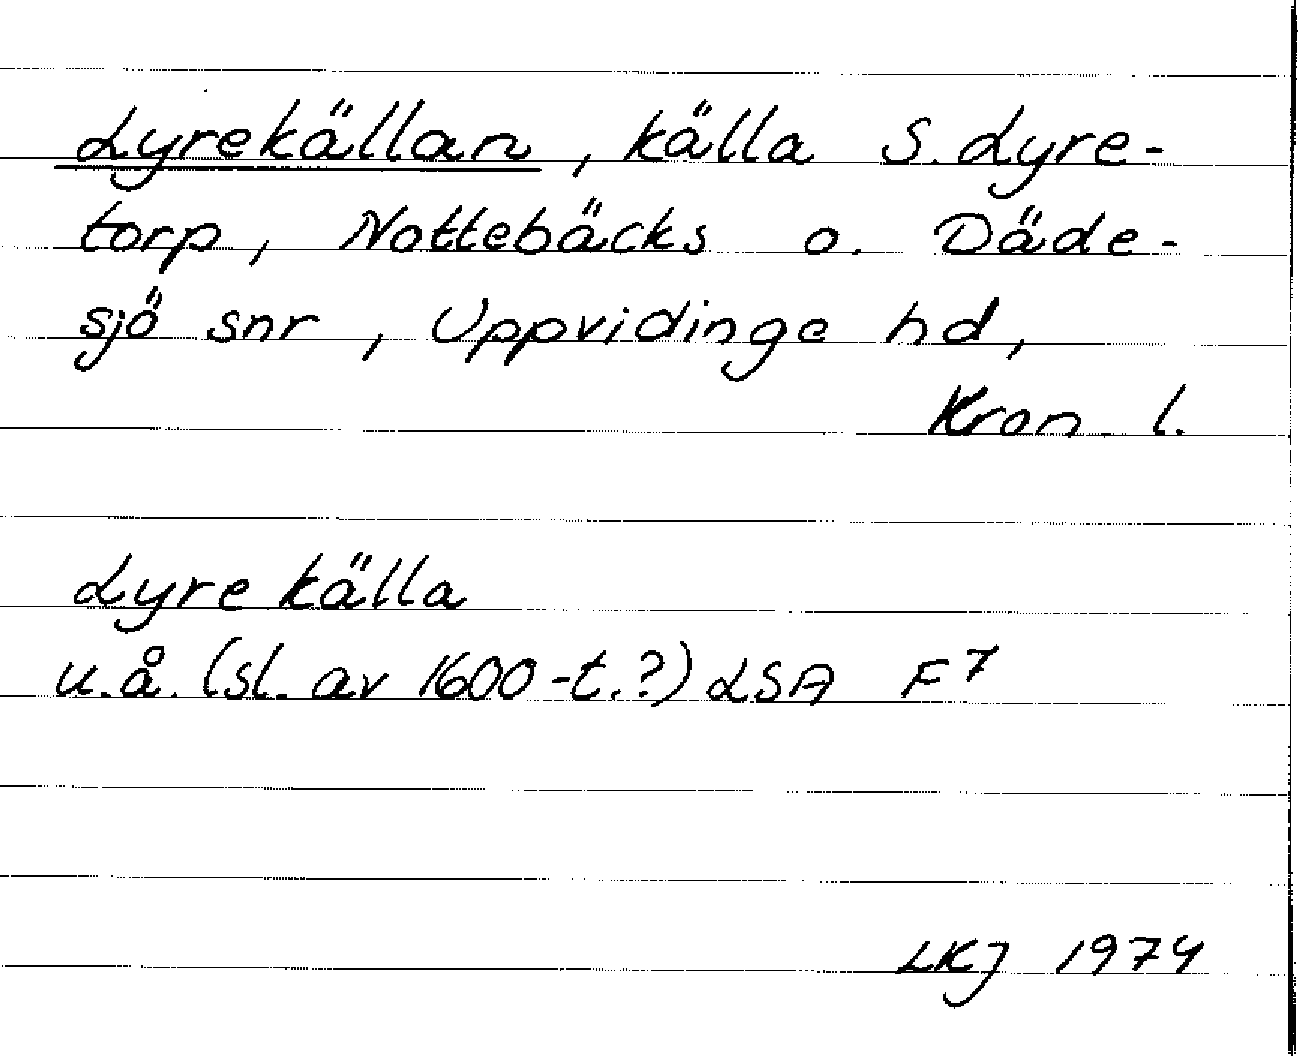 Lyrekällan, källa S. Lyre-
torp, Nottebäcks o. Däde-
sjö snr, Uppvidinge hd,
Kron. l.
Lyre källa
u.å. (sl. av 1600-t.?) LSA F 7
LKJ 1974